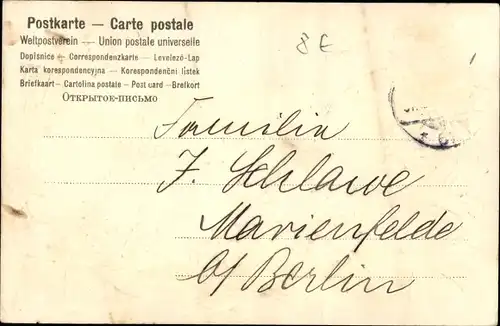 Postkarte — Carte postale
Weltpostverein — Union postale universelle
Dopisnice — Correspondenzkarte — Levelező-Lap
Karta korespondencyjna — Korespondenční lístek
Briefkaart — Cartolina postale — Post card — Brefkort
ОТКРЫТОЕ-ПИСЬМО
8 €
Familia
J. Schlawe
Marienfelde
b/ Berlin